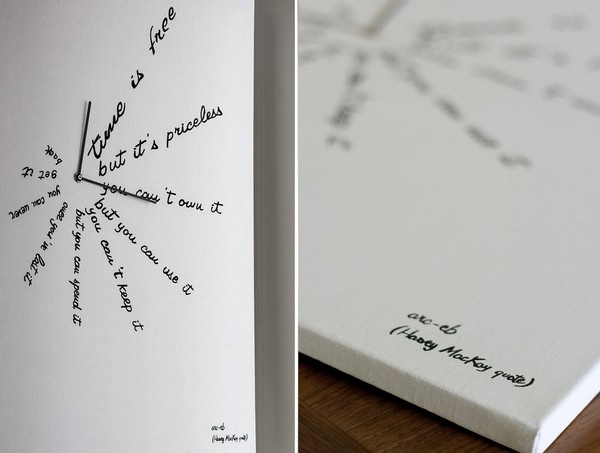 time is free
but it's priceless
you can't own it
but you can use it
you can't keep it
but you can spend it
once you've lost it
you can never
get it
back
arc-eb
(Harvey MacKay quote)
arc-eb
(Harvey MacKay quote)